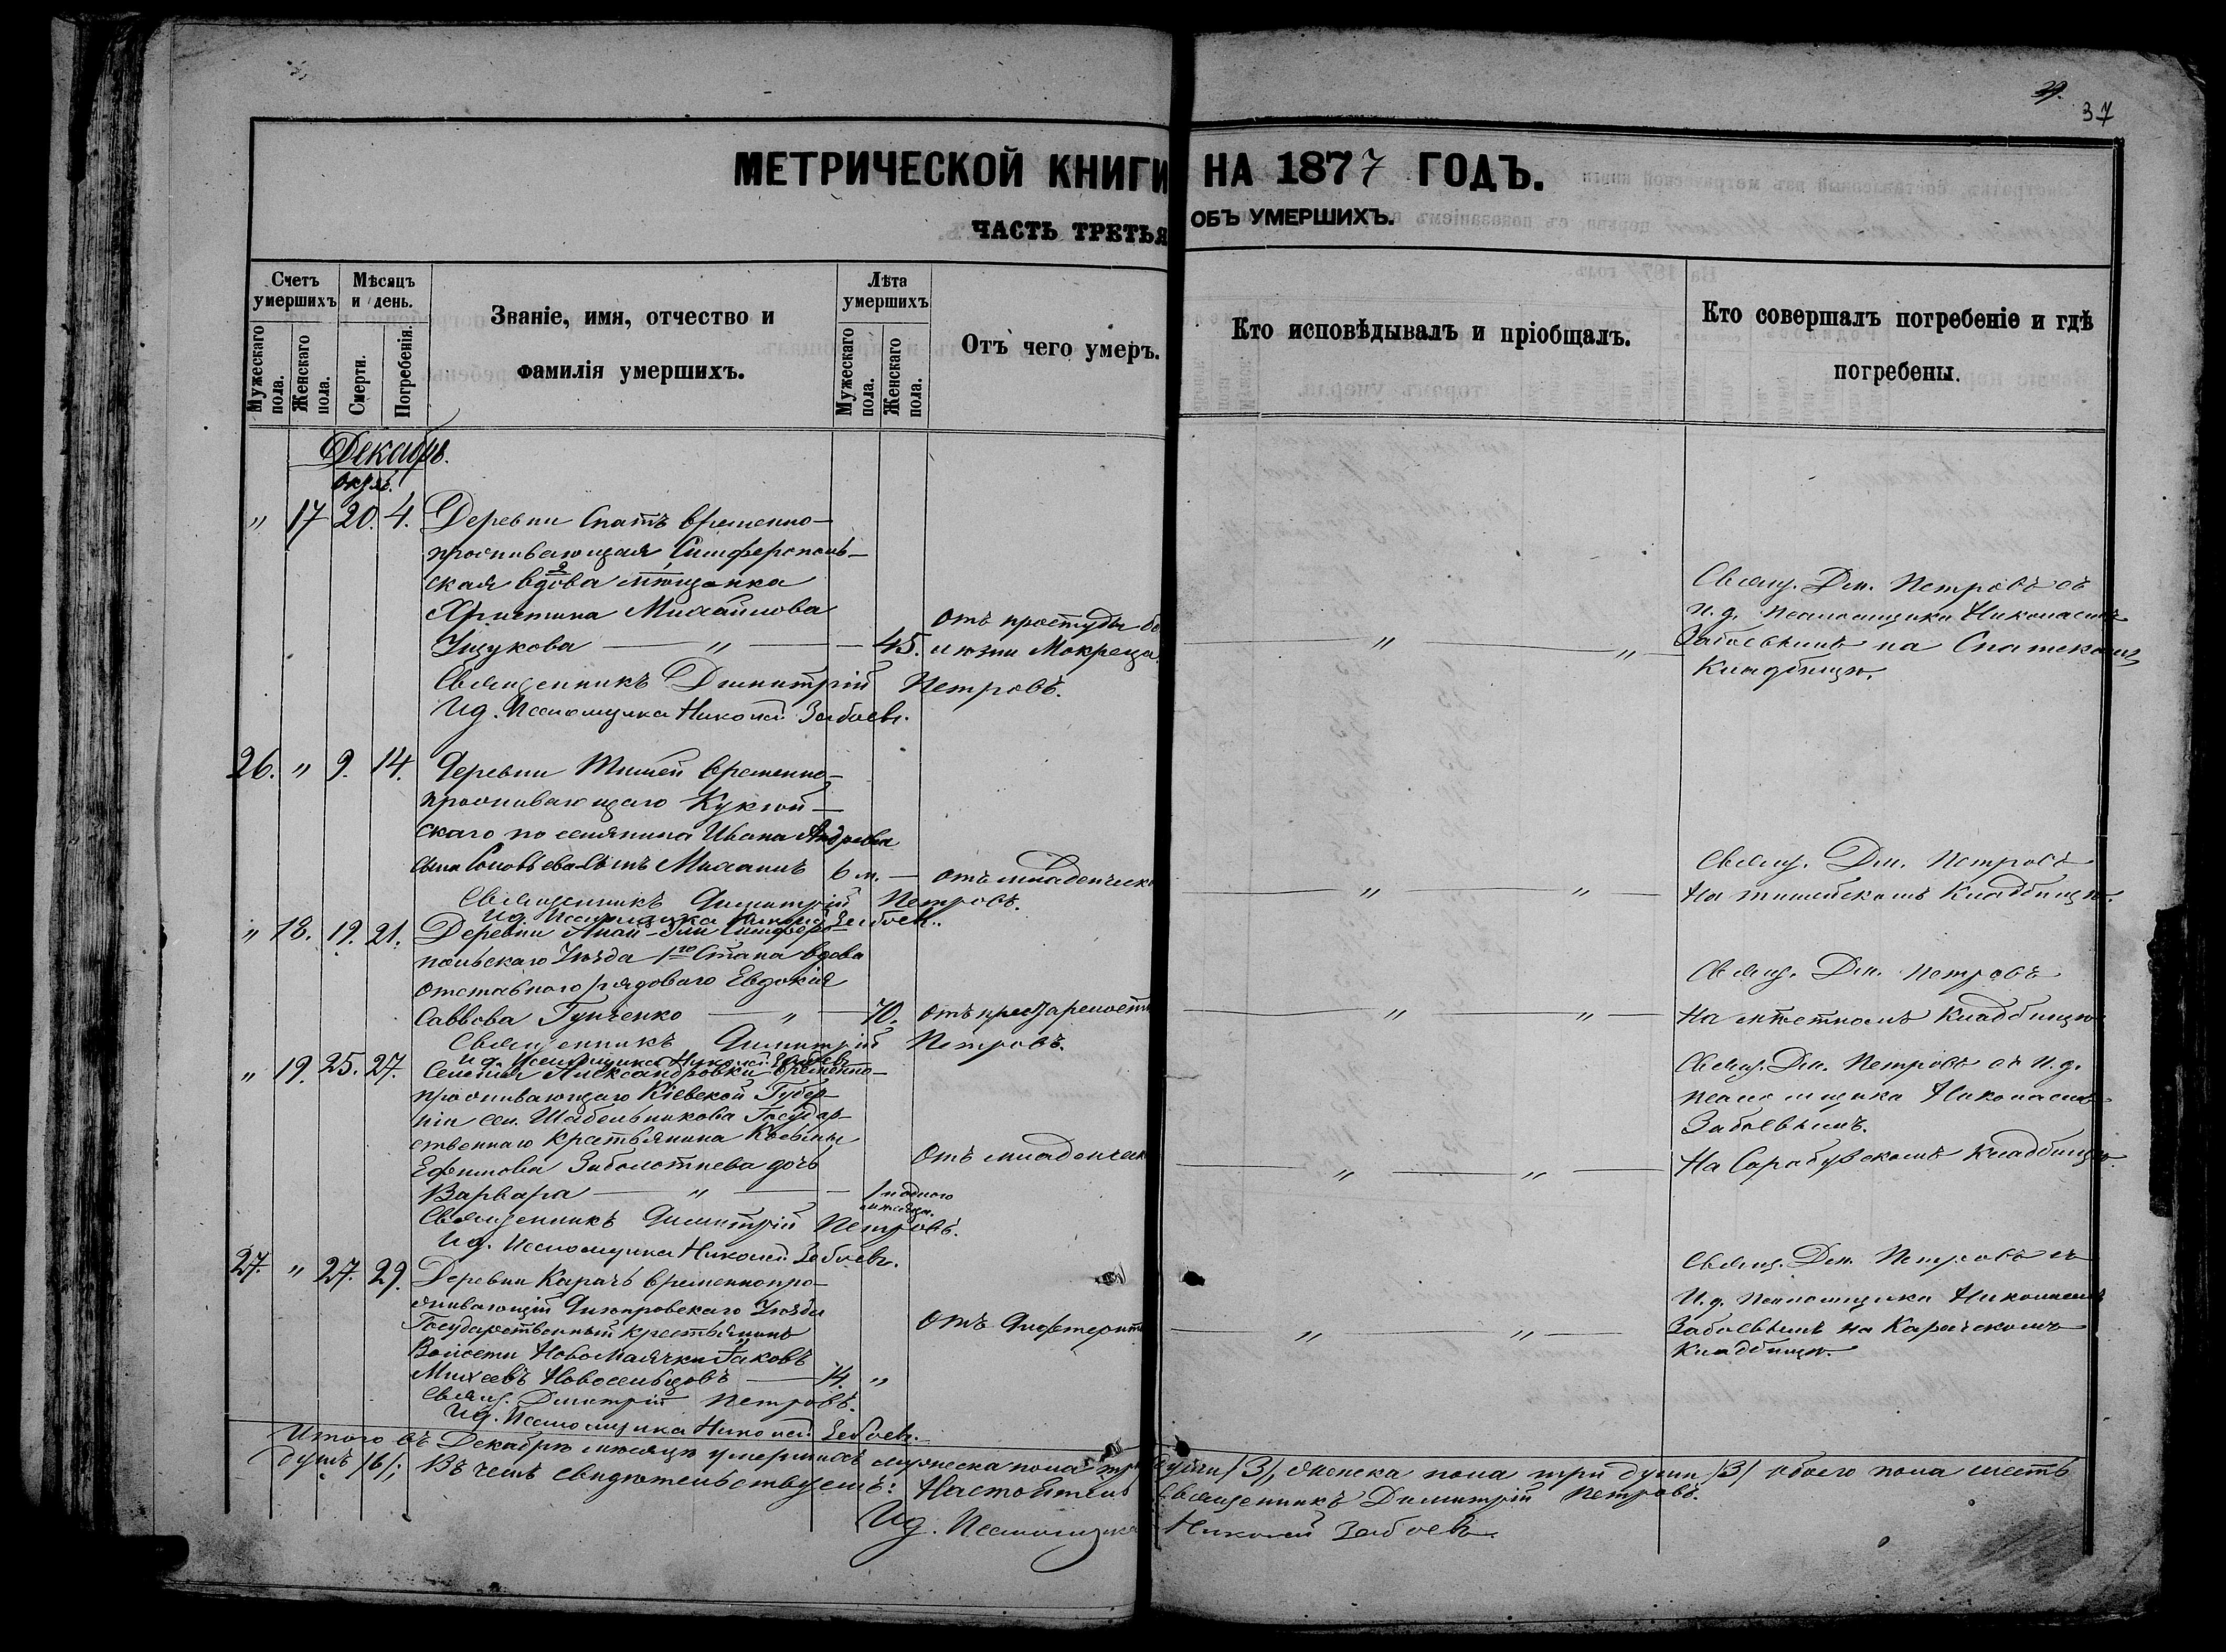 39.
37
МЕТРИЧЕСКОЙ КНИГИ НА 1877 ГОДЪ.
ЧАСТЬ ТРЕТЬЯ ОБЪ УМЕРШИХЪ.
Счетъ умершихъ
Мужескаго пола.
Женскаго пола.
Мѣсяцъ и день.
Смерти.
Погребенія.
Званіе, имя, отчество и
фамилія умершихъ.
Лѣта умершихъ
Мужескаго пола.
Женскаго пола.
Отъ чего умеръ.
Кто исповѣдывалъ и пріобщалъ.
Кто совершалъ погребеніе и гдѣ
погребены.
Декабрь.
" 17 20. 4. Деревни Спатъ временно-
проживающая Симферополь-
ская вдова мѣщанка
Христина Михайлова
— " — 45.
отъ простуды
Священникъ Димитрій Петровъ.
Ид. Псаломщика Николай Забоевъ.
Свящ. Дм. Петровъ съ
И. д. псаломщика Николаемъ
Забоевымъ на Спатскомъ
Кладбищѣ.
26. " 9. 14. Деревни временно-
проживающаго
скаго поселянина Ивана Андреева
сынъ Михаилъ 6 м. — отъ младенческ
Священникъ Димитрій Петровъ.
Ид. Псаломщика Николай Забоевъ.
Свящ. Дм. Петровъ
На Кладбищѣ.
" 18. 19. 21. Деревни Симферо
польскаго Уѣзда 1го Стана вдова
отставного рядоваго Евдокія
Саввова — " — 70. отъ престарелости
Священникъ Димитрій Петровъ.
Ид. Псаломщика Николай Забоевъ
Свящ. Дм. Петровъ
На мѣстномъ Кладбищѣ
" 19. 25. 27. Селенія Александровки временно-
проживающаго Кіевской Губер-
ніи сел. Шабельникова Государ-
ственнаго крестьянина
Ефимова Заболотнева дочь
Варвара — " — 1 одного мѣсяца.
Отъ младенческ
Священникъ Димитрій Петровъ.
Ид. Псаломщика Николай Забоевъ.
Свящ. Дм. Петровъ съ И. д.
псаломщика Николаемъ
Забоевымъ.
На Сарабузскомъ Кладбищѣ.
27. " 27. 29. Деревни Карачъ временнопро-
живающій Днѣпровскаго Уѣзда
Государственный крестьянинъ
Волости Новомаячки Іаковъ
Михеевъ Новосельцовъ — 14. "
Отъ Дифтерита
Свящ. Димитрій Петровъ.
Ид. Псаломщика Николай Забоевъ.
Свящ. Дм. Петровъ съ
И. д. псаломщика Николаемъ
Забоевымъ на Карачскомъ
Кладбищѣ.
Итого въ Декабрѣ мѣсяцѣ умершихъ мужеска пола три души /3/, женска пола три души /3/ обоего пола шесть
душъ /6/; Въ чемъ свидѣтельствуемъ: Настоятель Священникъ Димитрій Петровъ.
Ид. Псаломщика Николай Забоевъ.